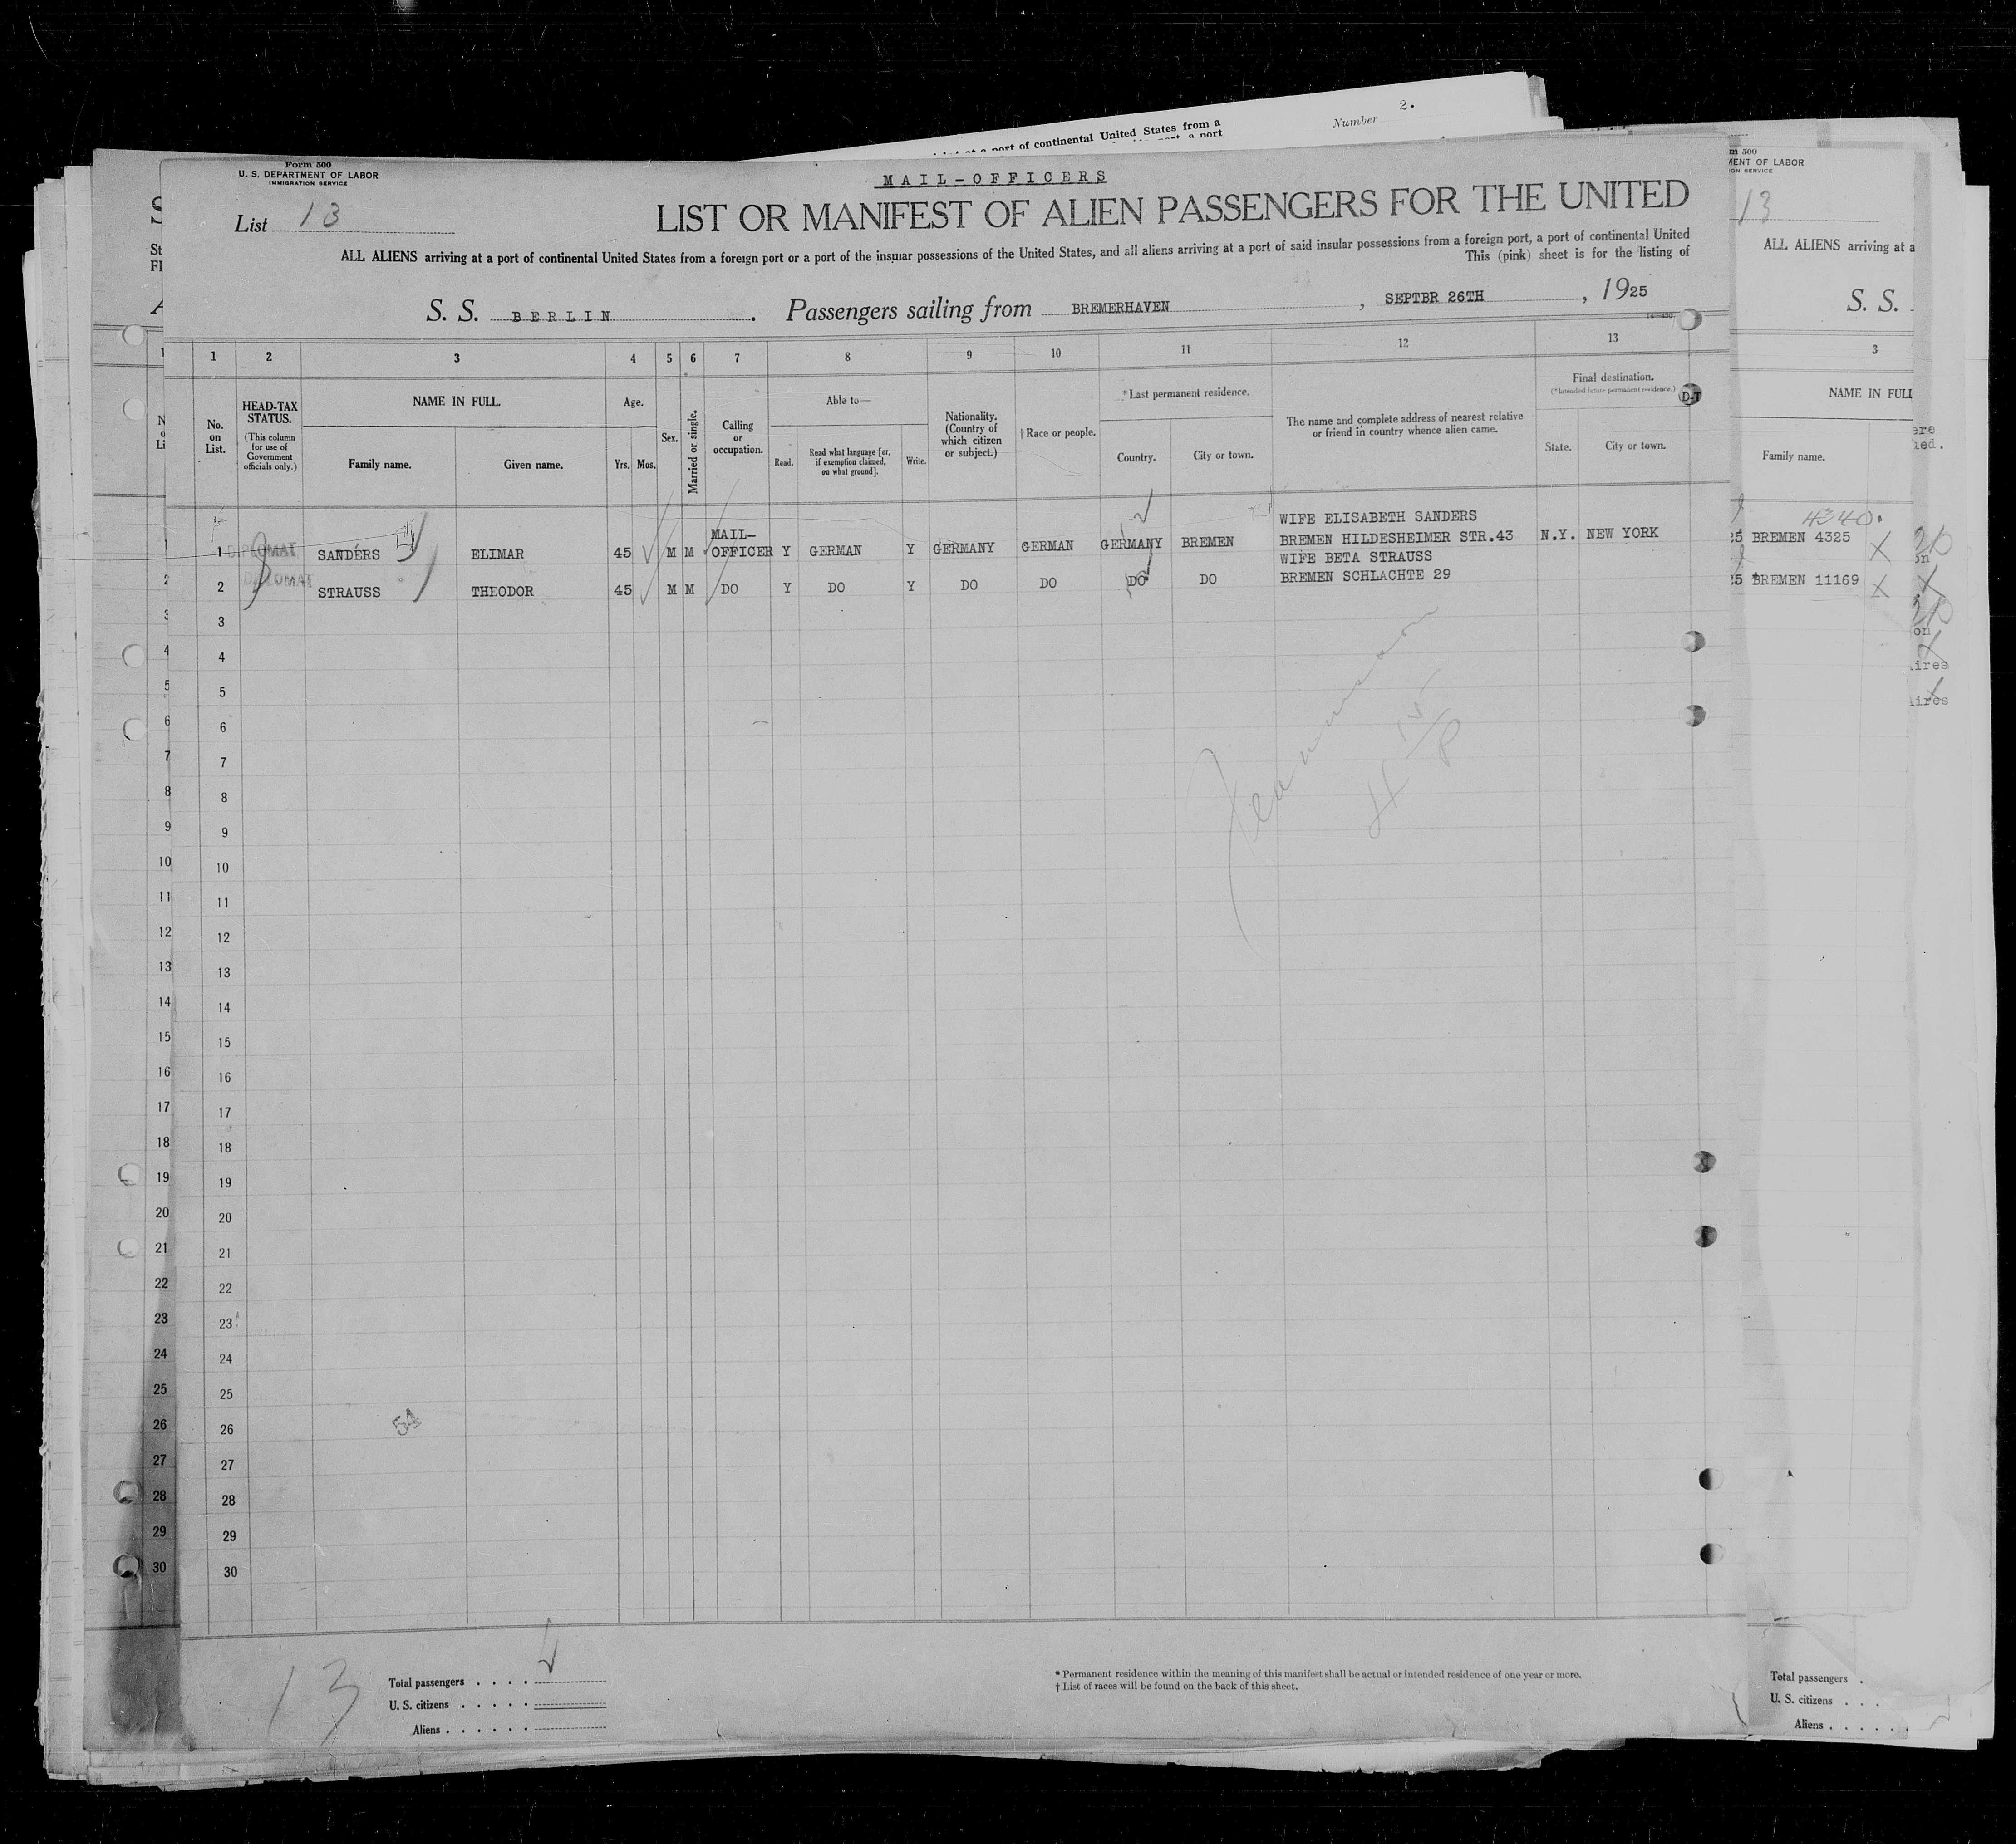 2.
Number
of continental United States from a
Form 500
U. S. DEPARTMENT OF LABOR
IMMIGRATION SERVICE
MAIL-OFFICERS
List 13
LIST OR MANIFEST OF ALIEN PASSENGERS FOR THE UNITED
ALL ALIENS arriving at a port of continental United States from a foreign port or a port of the insular possessions of the United States, and all aliens arriving at a port of said insular possessions from a foreign port, a port of continental United
This (pink) sheet is for the listing of
S. S. BERLIN . Passengers sailing from BREMERHAVEN , SEPTBR 26TH , 1925
1 2 3 4 5 6 7 8 9 10 11 12 13
No. on List.
HEAD-TAX STATUS.
(This column for use of Government officials only.)
NAME IN FULL.
Family name. Given name.
Age.
Yrs. Mos.
Sex.
Married or single.
Calling or occupation.
Able to—
Read. Read what language [or, if exemption claimed, on what ground]. Write.
Nationality. (Country of which citizen or subject.)
†Race or people.
*Last permanent residence.
Country. City or town.
The name and complete address of nearest relative or friend in country whence alien came.
Final destination.
(*Intended future permanent residence.)
State. City or town.
D-T
WIFE ELISABETH SANDERS
1 DIPLOMAT SANDERS ELIMAR 45 M M MAIL-OFFICER Y GERMAN Y GERMANY GERMAN GERMANY BREMEN BREMEN HILDESHEIMER STR.43 N.Y. NEW YORK
WIFE BETA STRAUSS
2 DIPLOMAT STRAUSS THEODOR 45 M M DO Y DO Y DO DO DO DO BREMEN SCHLACHTE 29
3
4
5
6
7
8
9
10
11
12
13
14
15
16
17
18
19
20
21
22
23
24
25
26
54
27
28
29
30
13
Total passengers
U. S. citizens
Aliens
* Permanent residence within the meaning of this manifest shall be actual or intended residence of one year or more.
† List of races will be found on the back of this sheet.
13
ALL ALIENS arriving at a
S. S.
3
NAME IN FULL
Family name.
4340.
25 BREMEN 4325
25 BREMEN 11169
Total passengers
U. S. citizens
Aliens